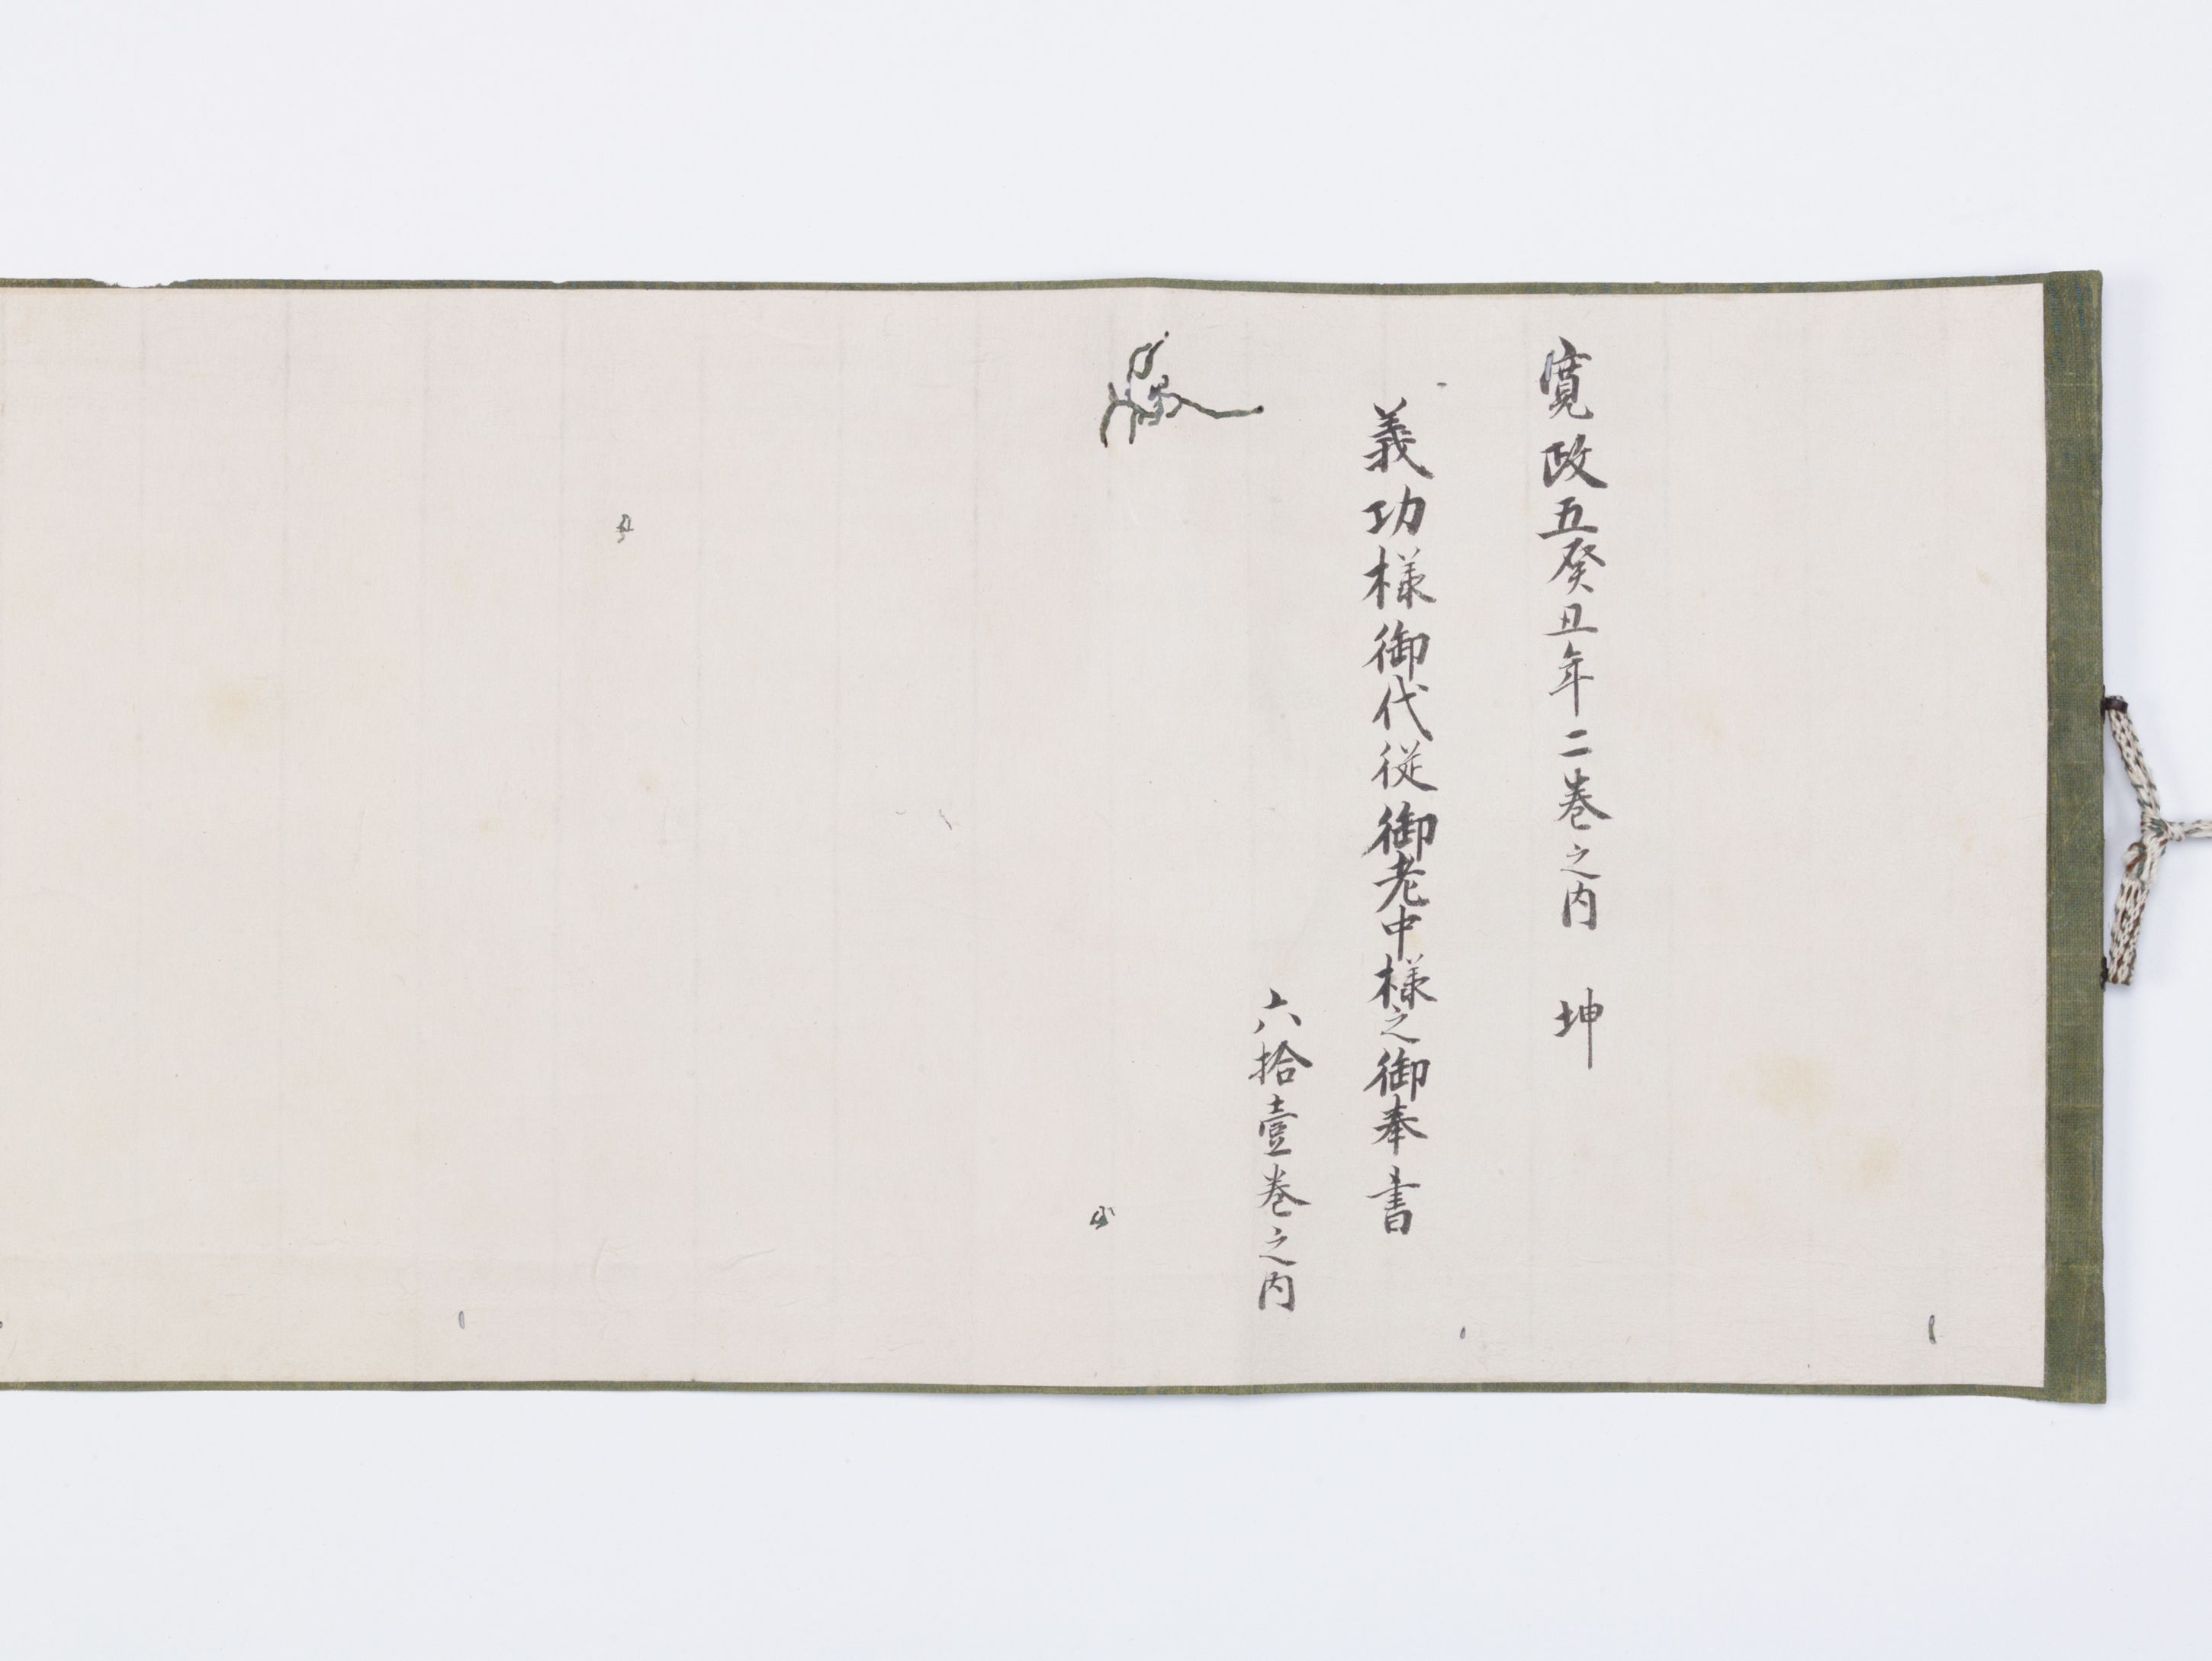 寛政五癸丑年二巻之内　坤
義功様御代従御老中様之御奉書
六拾壹巻之内